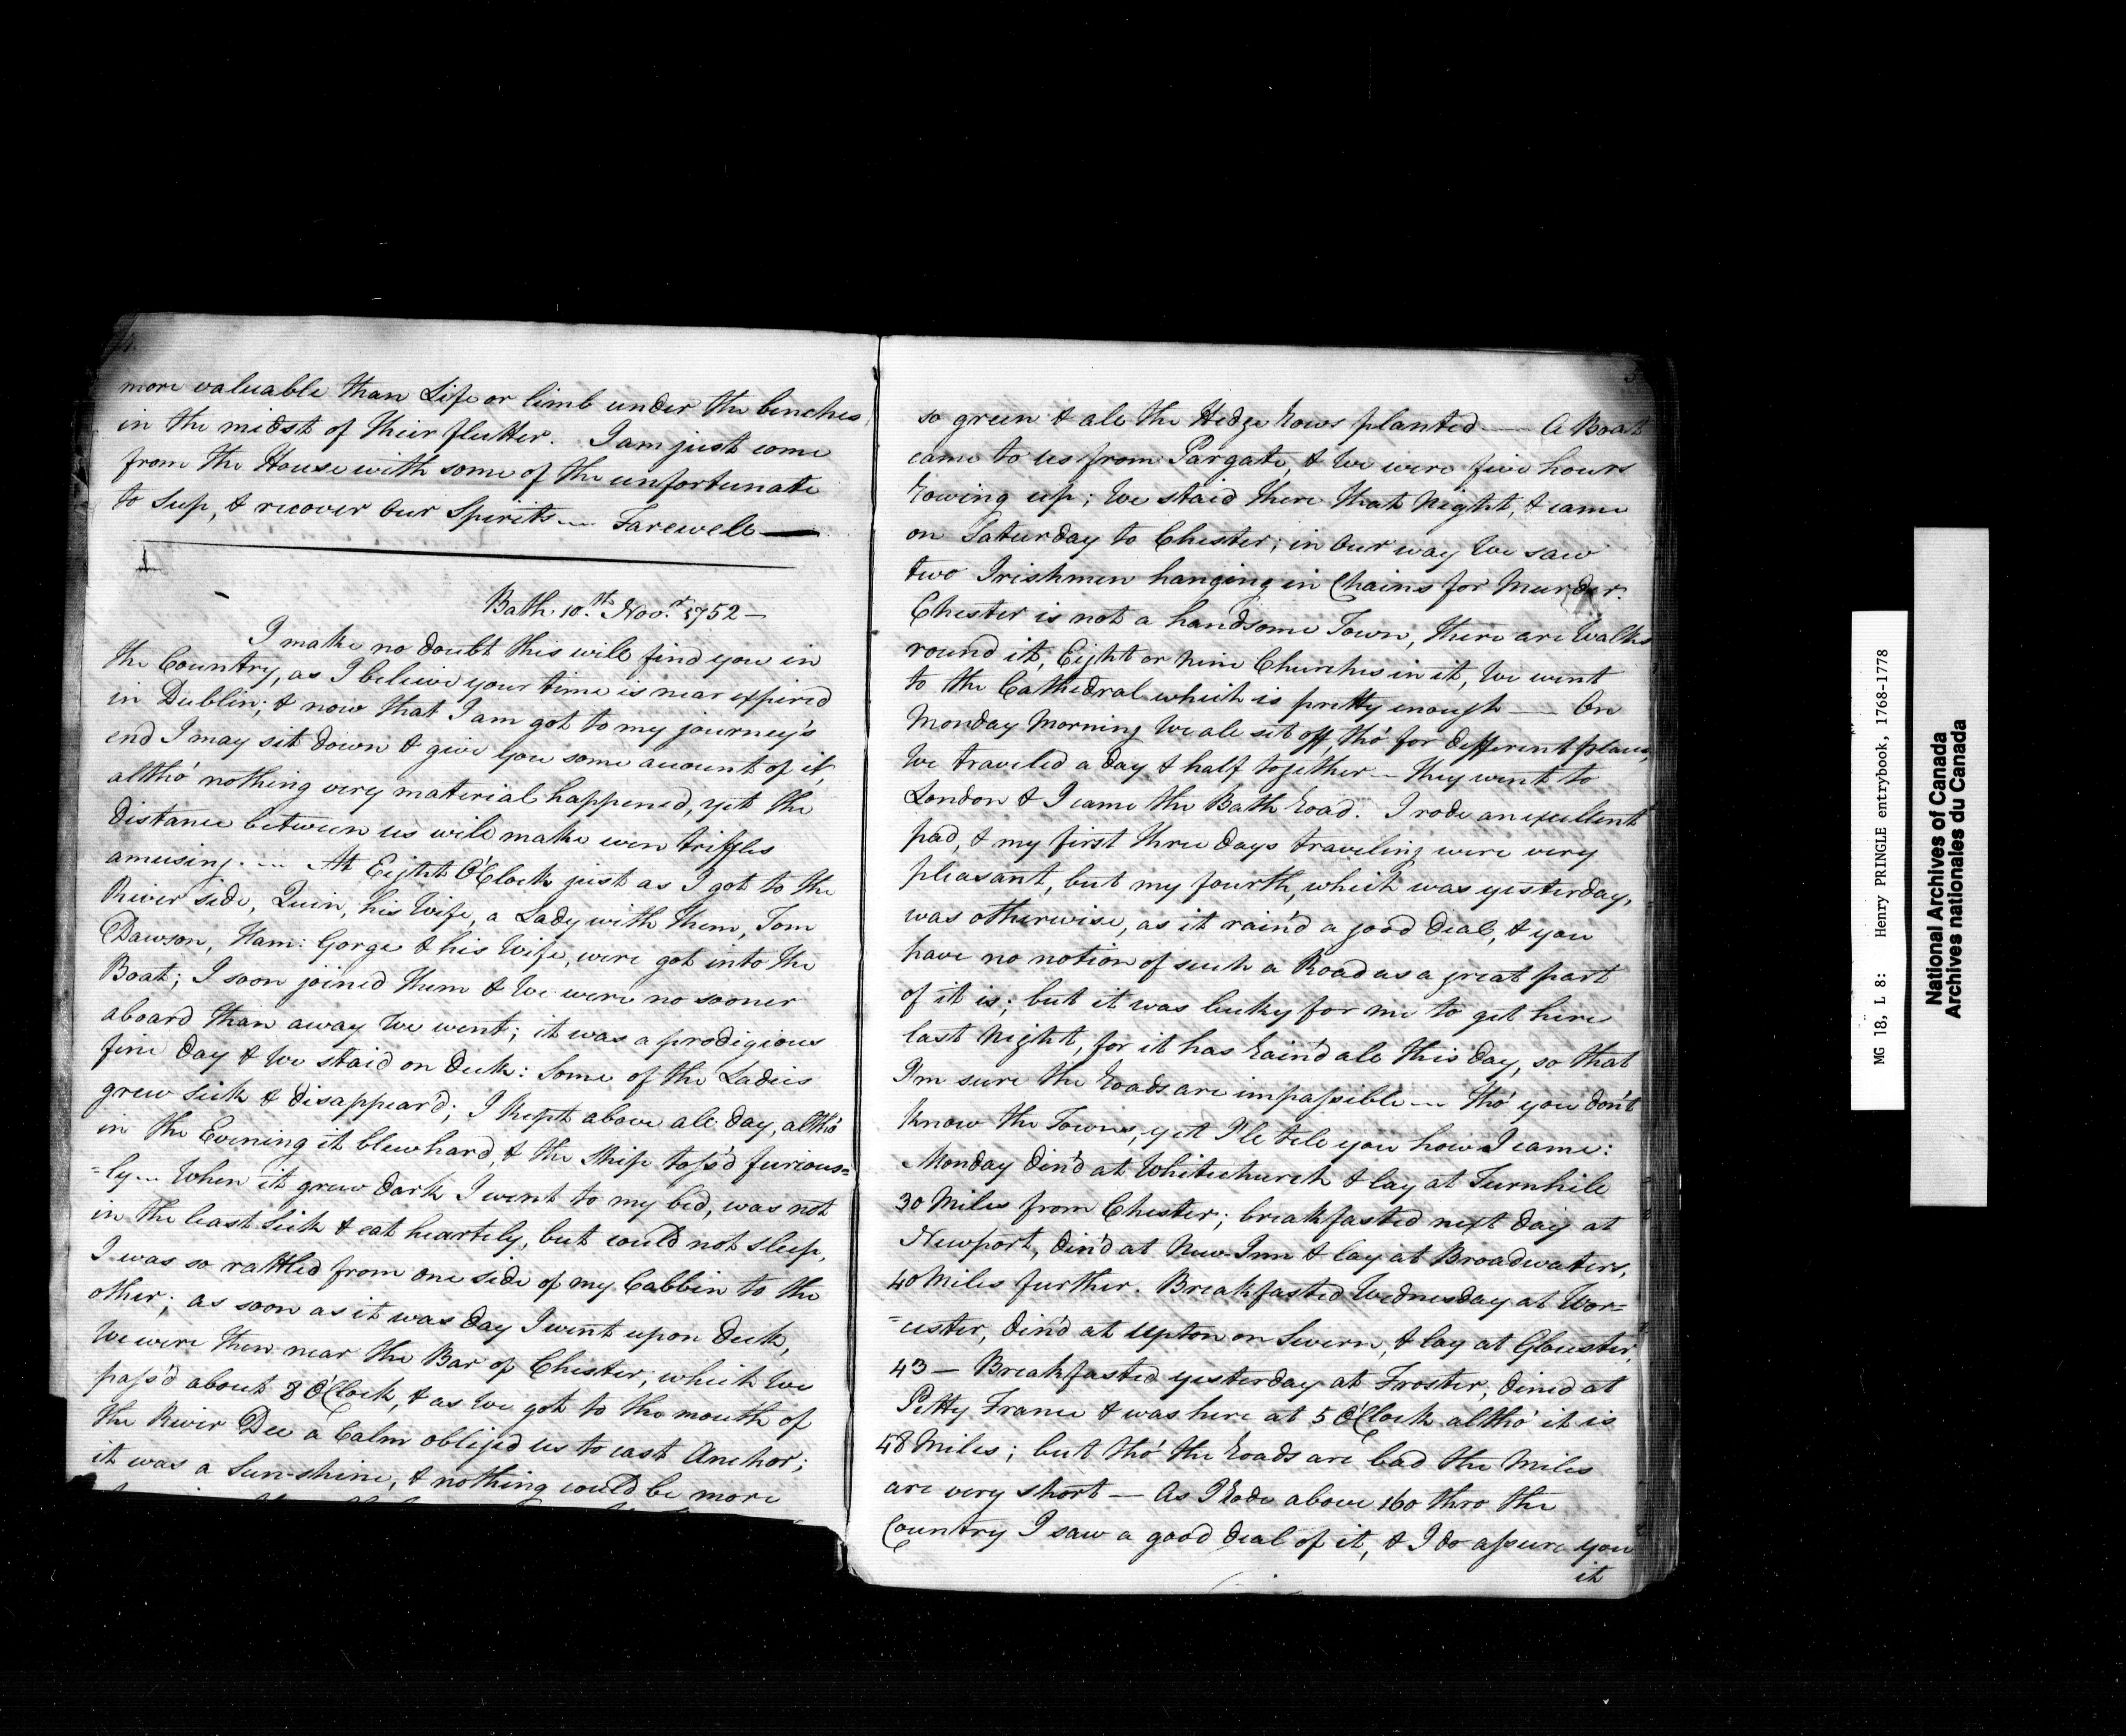 4.
more valuable than Life or limb under the benches
in the midst of their flutter. I am just come
from the House with some of the unfortunate
to Sup, & recover Our Spirits... Farewell —
Bath 10.th Nov.r 1752 —
I make no doubt this will find you in
the Country, as I believe your time is near expired
in Dublin; & now that I am got to my journey's
end I may sit down & give you some account of it,
altho' nothing very material happened, yet the
distance between us will make even triffles
amusing. ... At Eight O'Clock just as I got to the
River side, Quin, his Wife, a Lady with them, Tom
Dawson, Ham: Gorge & his Wife, were got into the
Boat; I soon joined them & We were no sooner
aboard than away We went; it was a prodigious
fine day & We staid on Deck: Some of the Ladies
grew sick & disappear'd; I kept above all day, altho'
in the Evening it blew hard, & the Ship toss'd furious=
=ly... When it grew dark I went to my bed, was not
in the least sick & eat heartely, but could not sleep,
I was so rattled from one side of my Cabbin to the
other; as soon as it was day I went upon Deck,
We were then near the Bar of Chester, which We
pass'd about 8 O'Clock, & as We got to the mouth of
the River Dee a Calm obliged us to cast Anchor;
it was a Sun-shine, & nothing could be more
5
so green & all the Hedge Rows planted —— A Boat
came to us from Pargate, & We were five hours
Rowing up; We staid there that Night, & came
on Saturday to Chester; in Our way We saw
two Irishmen hanging in Chains for Murder.
Chester is not a handsome Town, there are Walks
round it, Eight or Nine Churches in it, We went
to the Cathedral which is pretty enough —— On
Monday Morning We all set off, tho' for different places,
We traveled a day & half together — they went to
London & I came the Bath Road. I rode an excellent
pad, & my first three days traveling were very
pleasant, but my fourth, which was yesterday,
was otherwise, as it rain'd a good deal, & you
have no notion of such a Road as a great part
of it is; but it was lucky for me to get here
last Night, for it has Rain'd all this day, so that
I'm sure the Roads are impassible ... Tho' you don't
know the Towns, yet I'le tell you how I came:
Monday din'd at Whitechurch & lay at Turnhill
30 Miles from Chester; breakfasted next day at
Newport, din'd at New-Inn & lay at Broadwaters,
40 Miles further. Breakfasted Wednesday at Wor=
=cester, din'd at Upton on Severn, & lay at Glouster,
43 — Breakfasted yesterday at Froster, dined at
Petty France & was here at 5 O'Clock altho' it is
48 Miles; but tho' the Roads are bad the Miles
are very short — As I Rode above 160 thro the
Country I saw a good deal of it, & I do assure you
it
MG 18, L 8: Henry PRINGLE entrybook, 1768-1778
National Archives of Canada
Archives nationales du Canada